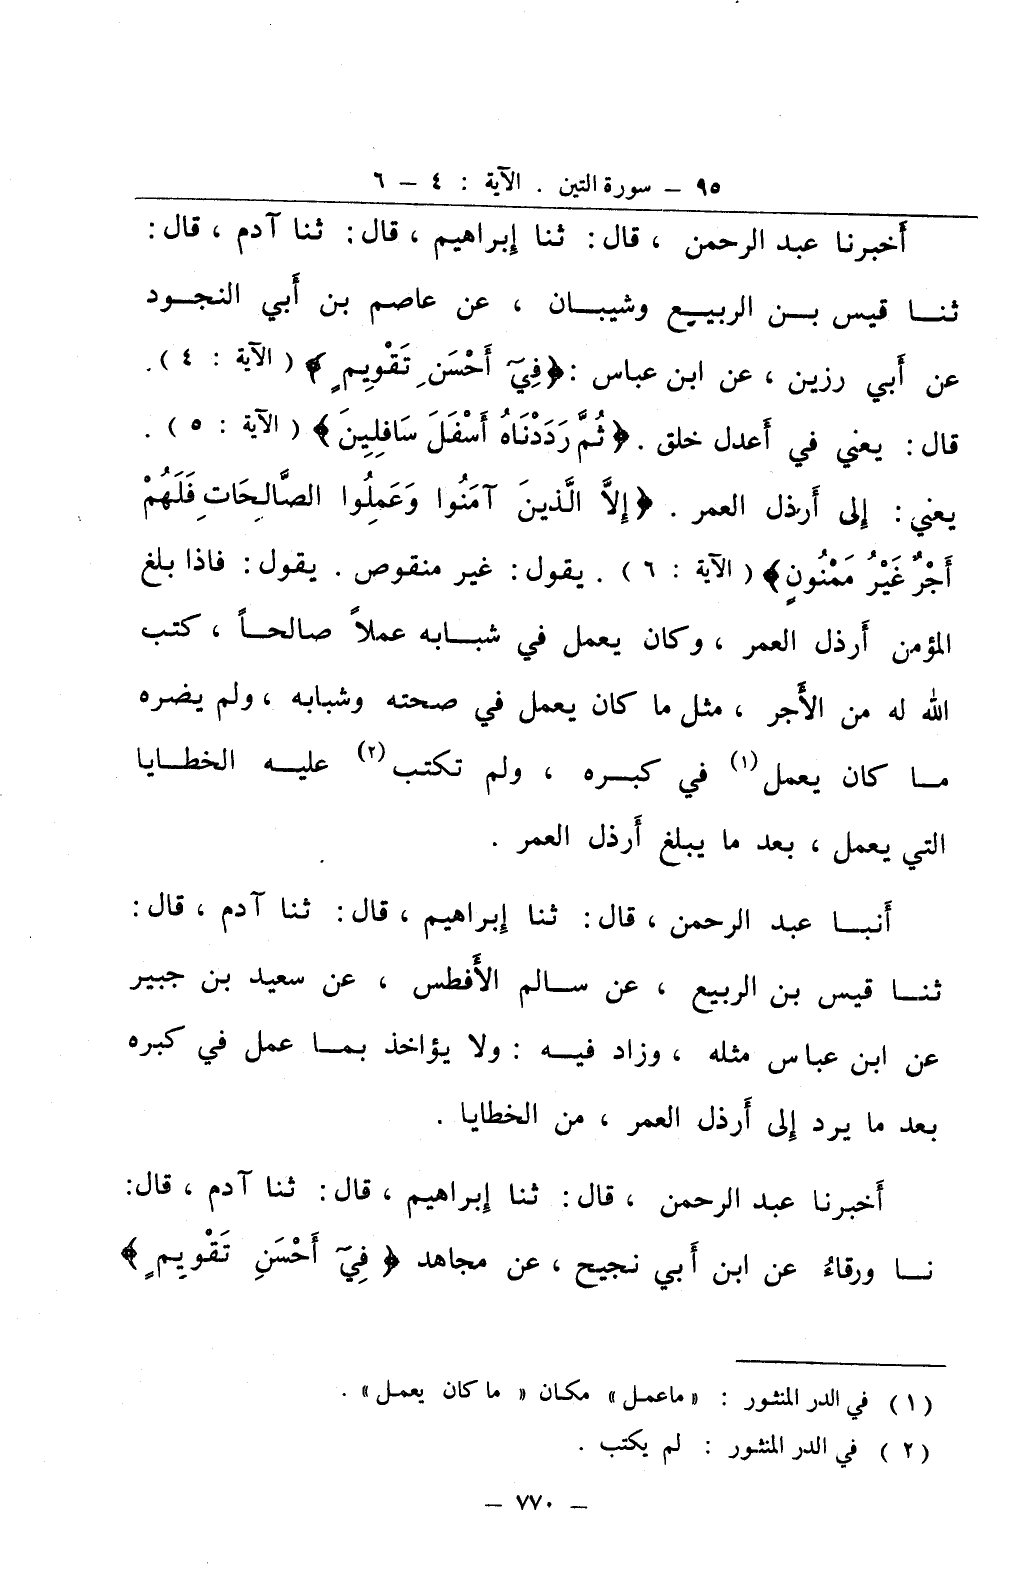 ٩٥ – سورة التين . الآية : ٤ – ٦
أَخبرنا عبد الرحمن ، قال : ثنا إبراهيم ، قال : ثنا آدم ، قال :
ثنـــا قيس بـــن الربيـــع وشيبـــان ، عن عاصم بن أَبي النجـــود
عن أَبي رزين ، عن ابن عباس : ﴿فِيٓ أَحْسَنِ تَقْوِيمٍ﴾ ( الآية : ٤ ) .
قال : يعني في أَعدل خلق . ﴿ثُمَّ رَدَدْنَاهُ أَسْفَلَ سَافِلِينَ﴾ ( الآية : ٥ ) .
يعني : إلى أَرذل العمر . ﴿إِلاَّ الَّذينَ آمَنُوا وَعَمِلُوا الصَّالِحَاتِ فَلَهُمْ
أَجْرٌ غَيْرُ مَمْنُونٍ﴾ ( الآية : ٦ ) . يقول : غير منقوص . يقول : فاذا بلغ
المؤمن أَرذل العمر ، وكان يعمل في شبـــابه عملاً صالحـــاً ، كتب
الله له من الأَجر ، مثل ما كان يعمل في صحته وشبابه ، ولم يضره
مـــا كان يعمل(١) في كبـــره ، ولم تكتب(٢) عليـــه الخطـــايا
التي يعمل ، بعد ما يبلغ أَرذل العمر .
أَنبـــا عبد الرحمن ، قال : ثنا إبراهيم ، قال : ثنا آدم ، قال :
ثنـــا قيس بن الربيع ، عن ســـالم الأَفطس ، عن سعيد بن جبير
عن ابن عباس مثله ، وزاد فيـــه : ولا يؤاخذ بمـــا عمل في كبره
بعد ما يرد إلى أَرذل العمر ، من الخطايا .
أَخبرنا عبد الرحمن ، قال : ثنا إبراهيم ، قال : ثنا آدم ، قال :
نـــا ورقاءُ عن ابن أَبي نجيح ، عن مجاهد ﴿ فِيٓ أَحْسَنِ تَقْوِيمٍ ﴾
( ١ ) في الدر المنثور : « ماعمل » مكان « ما كان يعمل » .
( ٢ ) في الدر المنثور : لم يكتب .
– ٧٧٠ –